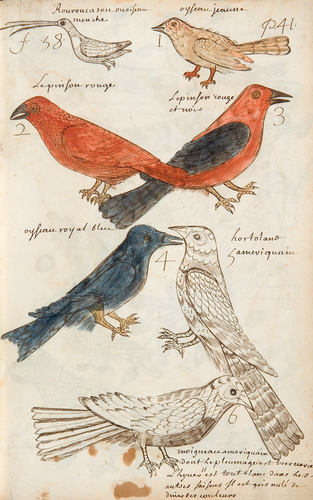 Rouroucason ou oiseau
mouche
oyseau jeaune
p 41.
f 38
1
Le pinson rouge
Le pinson rouge
et noir
2
3
oyseau royal bleu
hortolano
4
5 ameriquain
6
moigneau ameriquain
dont le plumage est
l'hyver est tout blanc dans les
autres saisons Il est gris mêlé de
diverses couleurs